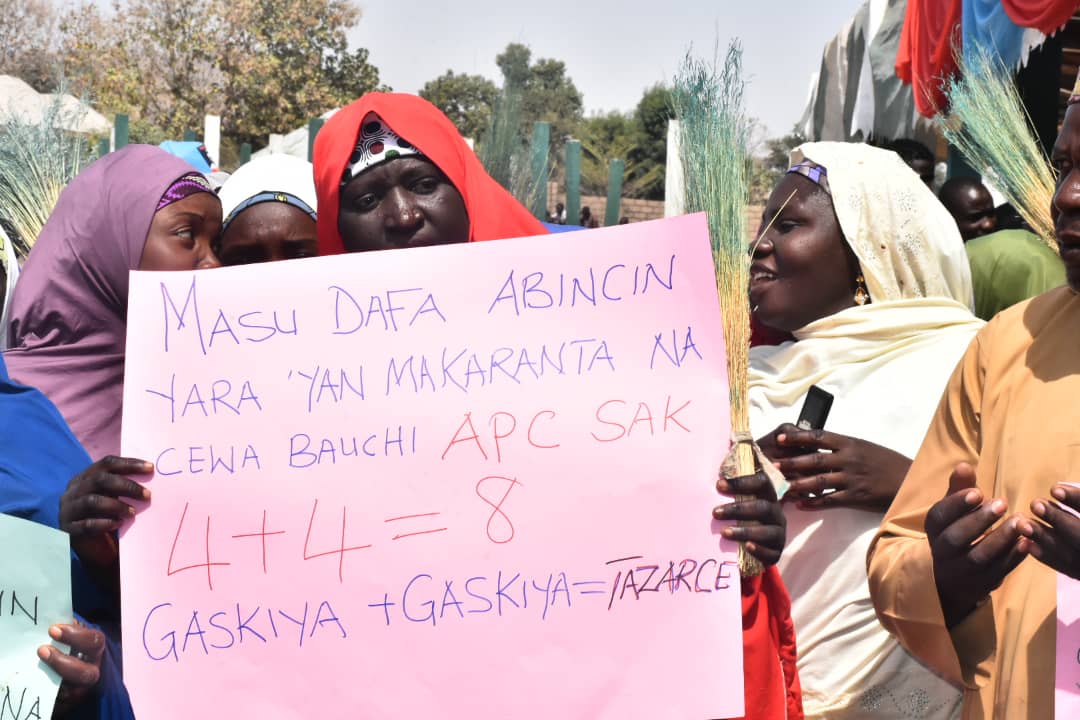 MASU DAFA ABINCIN
YARA 'YAN MAKARANTA NA
CEWA BAUCHI APC SAK
4+4=8
GASKIYA +GASKIYA=TAZARCE
IN
NA